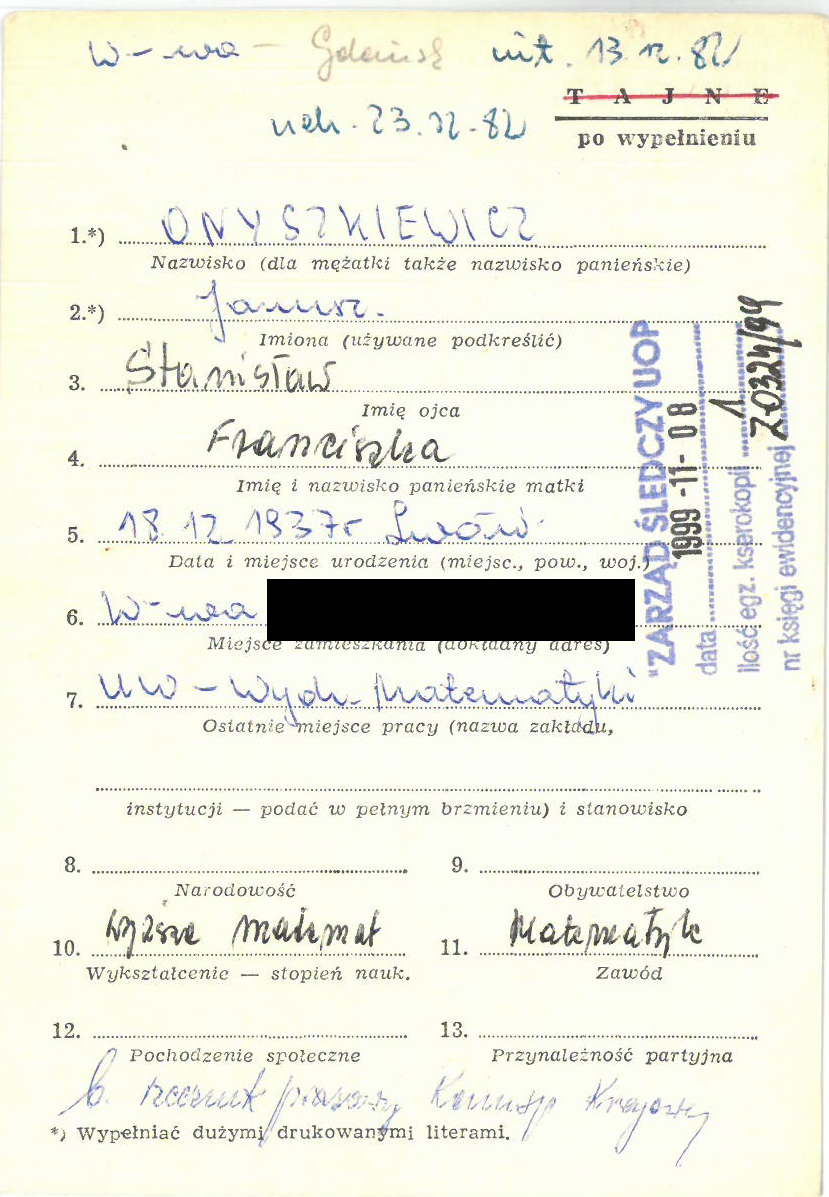 W-wa - Gdańsk int. 13.12.82
T A J N E
uch. 23.12.82
po wypełnieniu
1.*) ONYSZKIEWICZ
Nazwisko (dla mężatki także nazwisko panieńskie)
2.*) Janusz.
Imiona (używane podkreślić)
3. Stanisław
Imię ojca
4. Franciszka
Imię i nazwisko panieńskie matki
5. 18 12 1937r Lwów
Data i miejsce urodzenia (miejsc., pow., woj.)
6. W-wa
Miejsce zamieszkania (dokładny adres)
7. UW - Wydz. Matematyki
Ostatnie miejsce pracy (nazwa zakładu,
instytucji — podać w pełnym brzmieniu) i stanowisko
8.
Narodowość
9.
Obywatelstwo
10. wyższe matemat
Wykształcenie — stopień nauk.
11. Matematyk
Zawód
12.
Pochodzenie społeczne
13.
Przynależność partyjna
b. rzecznik prasowy Komisji Krajowej
*) Wypełniać dużymi drukowanymi literami.
"ZARZĄD ŚLEDCZY UOP
data 1999-11-08
ilość egz. kserokopii 1
nr księgi ewidencyjnej Z0324/99